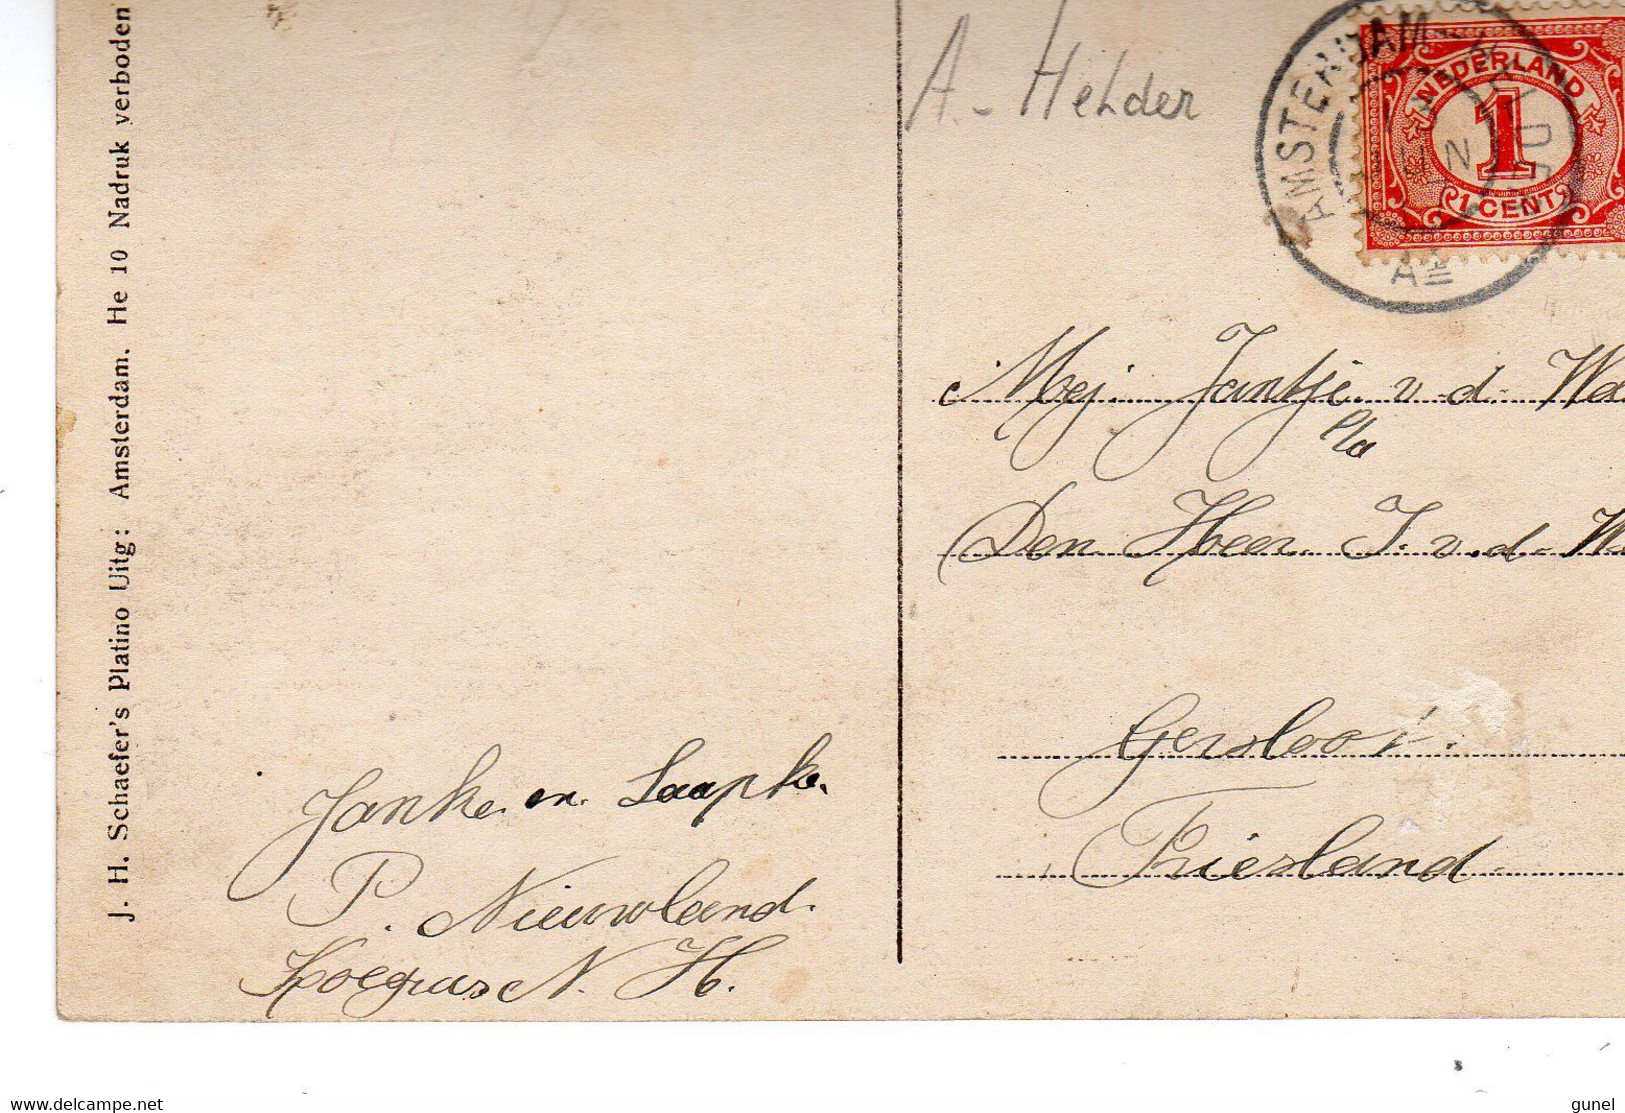 J. H. Schaefer's Platino Uitg: Amsterdam. He 10 Nadruk verboden
A. - Helder
AMSTERDAM
NEDERLAND
1
1 CENT
A
Mej. Jantje v. d. Wa
p/a
Den Heer J. v. d. W
Gersloot.
Friesland
Janke en Saapke.
P. Nieuwland.
Koegras N. H.
www.delcampe.net
gunel